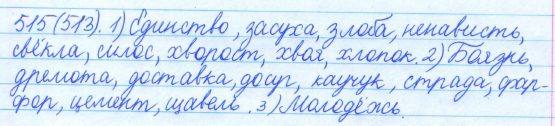 515(513). 1) Единство, засуха, злоба, ненависть,
свёкла, силос, хворост, хвоя, хлопок. 2) Боязнь,
дремота, доставка, досуг, каучук, страда, фар-
фор, цемент, щавель. 3) Молодёжь.